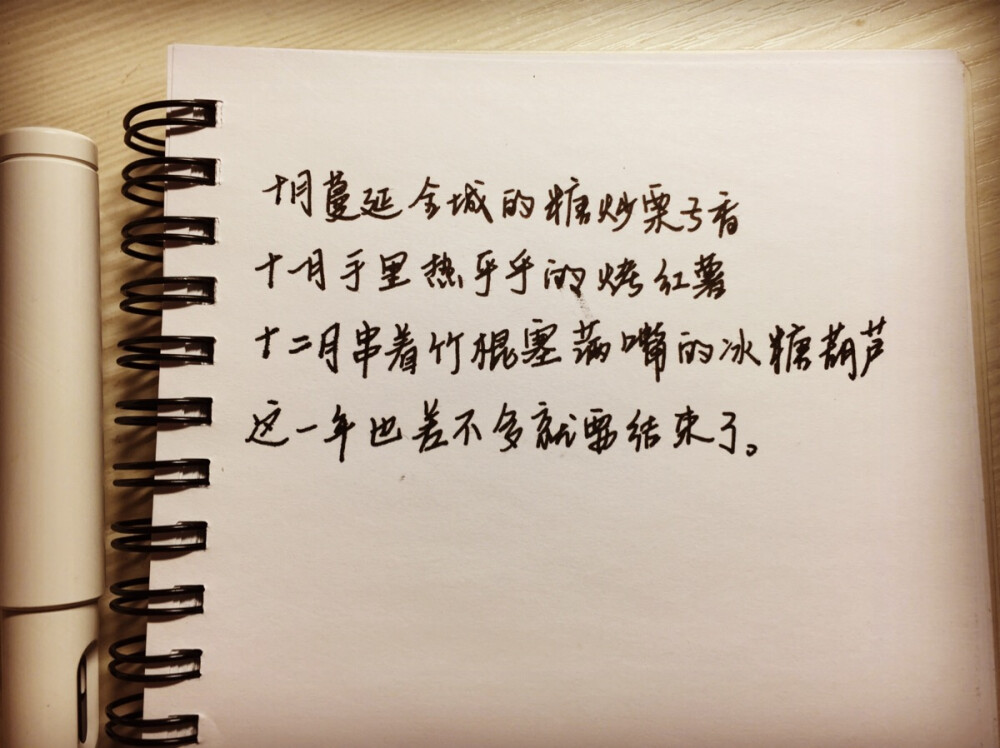 十月蔓延全城的糖炒栗子香
十一月手里热乎乎的烤红薯
十二月串着竹棍塞满嘴的冰糖葫芦
这一年也差不多就要结束了。